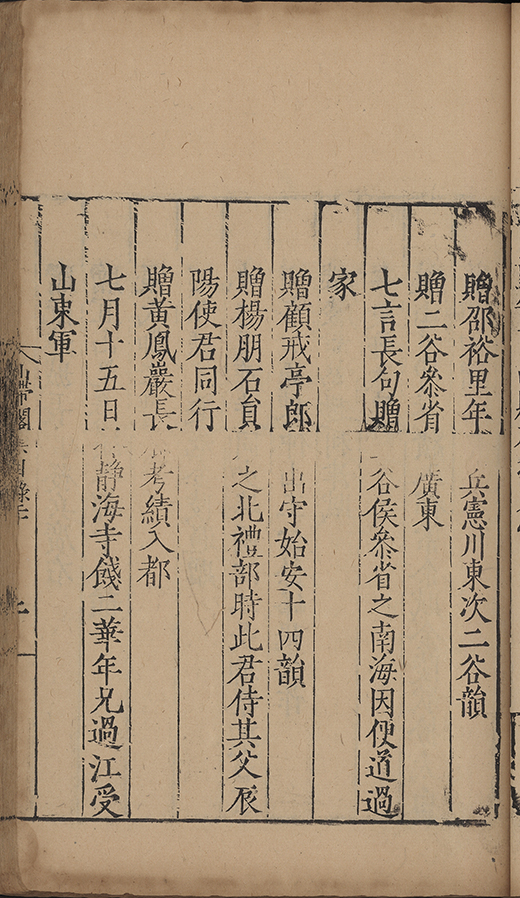 贈邵裕里年兵憲川東次二谷韻
贈二谷叅省廣東
七言長句贈谷侯叅省之南海因便道過
家
贈顧戒亭郎出守始安十四韻
贈楊朋石貟之北禮部時此君侍其父辰
陽使君同行
贈黃鳳巖長考績入都
七月十五日静海寺餞二華年兄過江受
山東軍